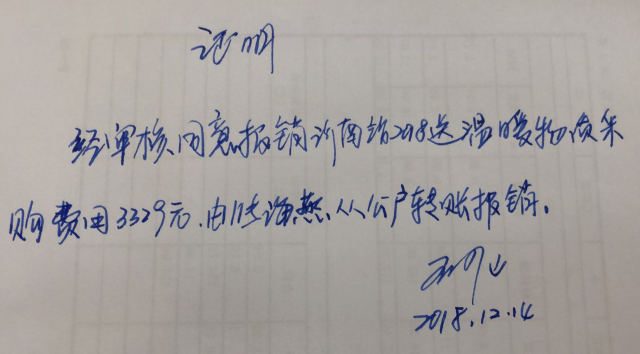 证明
经审核,同意报销沂南站2018送温暖物资采
购费用3329元.由陆海燕.从公户转账报销.
2018.12.14